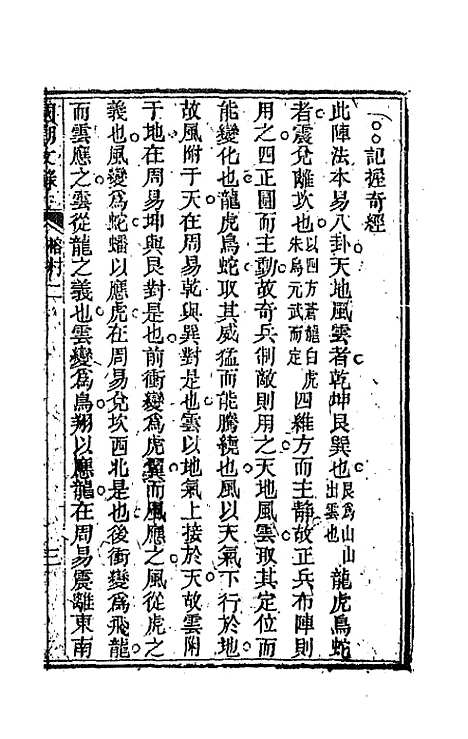 記握奇經
此陣法本易八卦天地風雲者乾坤艮巽也艮爲山山出雲也龍虎鳥蛇
者震兌離坎也以四方蒼龍白虎朱鳥元武而定四維方而主靜故正兵布陣則
用之四正圓而主動故奇兵制敵則用之天地風雲取其定位而
能變化也龍虎鳥蛇取其威猛而能騰繞也風以天氣下行於地
故風附于天在周易乾與巽對是也雲以地氣上接於天故雲附
于地在周易坤與艮對是也前衝變爲虎翼而風應之風從虎之
義也風變爲蛇蟠以應虎在周易兌坎西北是也後衝變爲飛龍
而雲應之雲從龍之義也雲變爲鳥翔以應龍在周易震離東南
國朝文錄
榕村二
三